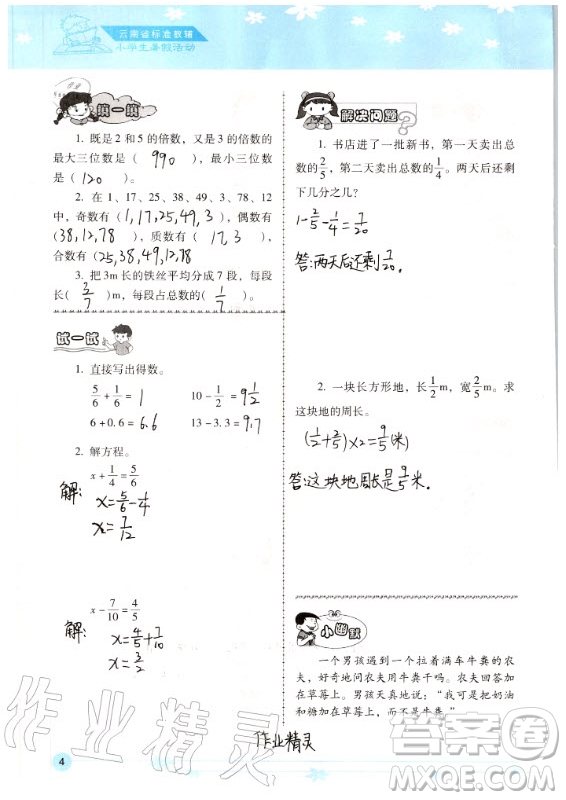 云南省标准教辅
小学生暑假活动
填一填
1. 既是 2 和 5 的倍数，又是 3 的倍数的
最大三位数是（ 990 ），最小三位数是
（ 120 ）。
2. 在 1、17、25、38、49、3、78、12
中，奇数有（1,17,25,49,3），偶数有
（38,12,78），质数有（ 17,3 ），
合数有（25,38,49,12,78）
3. 把 3m 长的铁丝平均分成 7 段，每段
长（ 3/7 ）m，每段占总数的（ 1/7 ）。
试一试
1. 直接写出得数。
5/6 + 1/6 = 1 10 - 1/2 = 9 1/2
6 + 0.6 = 6.6 13 - 3.3 = 9.7
2. 解方程。
x + 1/4 = 5/6
解: x = 5/6 - 1/4
x = 7/12
x - 7/10 = 4/5
解: x = 4/5 + 7/10
x = 3/2
解决问题
1. 书店进了一批新书，第一天卖出总
数的 2/5，第二天卖出总数的 1/4。两天后还剩
下几分之几？
1 - 2/5 - 1/4 = 7/20
答:两天后还剩 7/20.
2. 一块长方形地，长 1/2 m，宽 2/5 m。求
这块地的周长。
(1/2 + 2/5) × 2 = 9/5 (米)
答:这块地周长是 9/5 米.
小幽默
一个男孩遇到一个拉着满车牛粪的农
夫，好奇地问农夫用牛粪干吗。农夫回答加
在草莓上。男孩天真地说：“我可是把奶油
和糖加在草莓上，而不是牛粪。”
作业精灵
作业精灵
4
答案圈
MXQE.COM